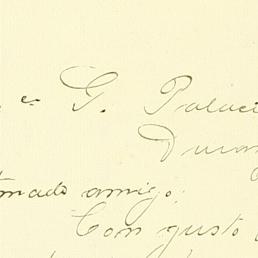 G. Palaci
Duran
timado amigo:
Con gusto